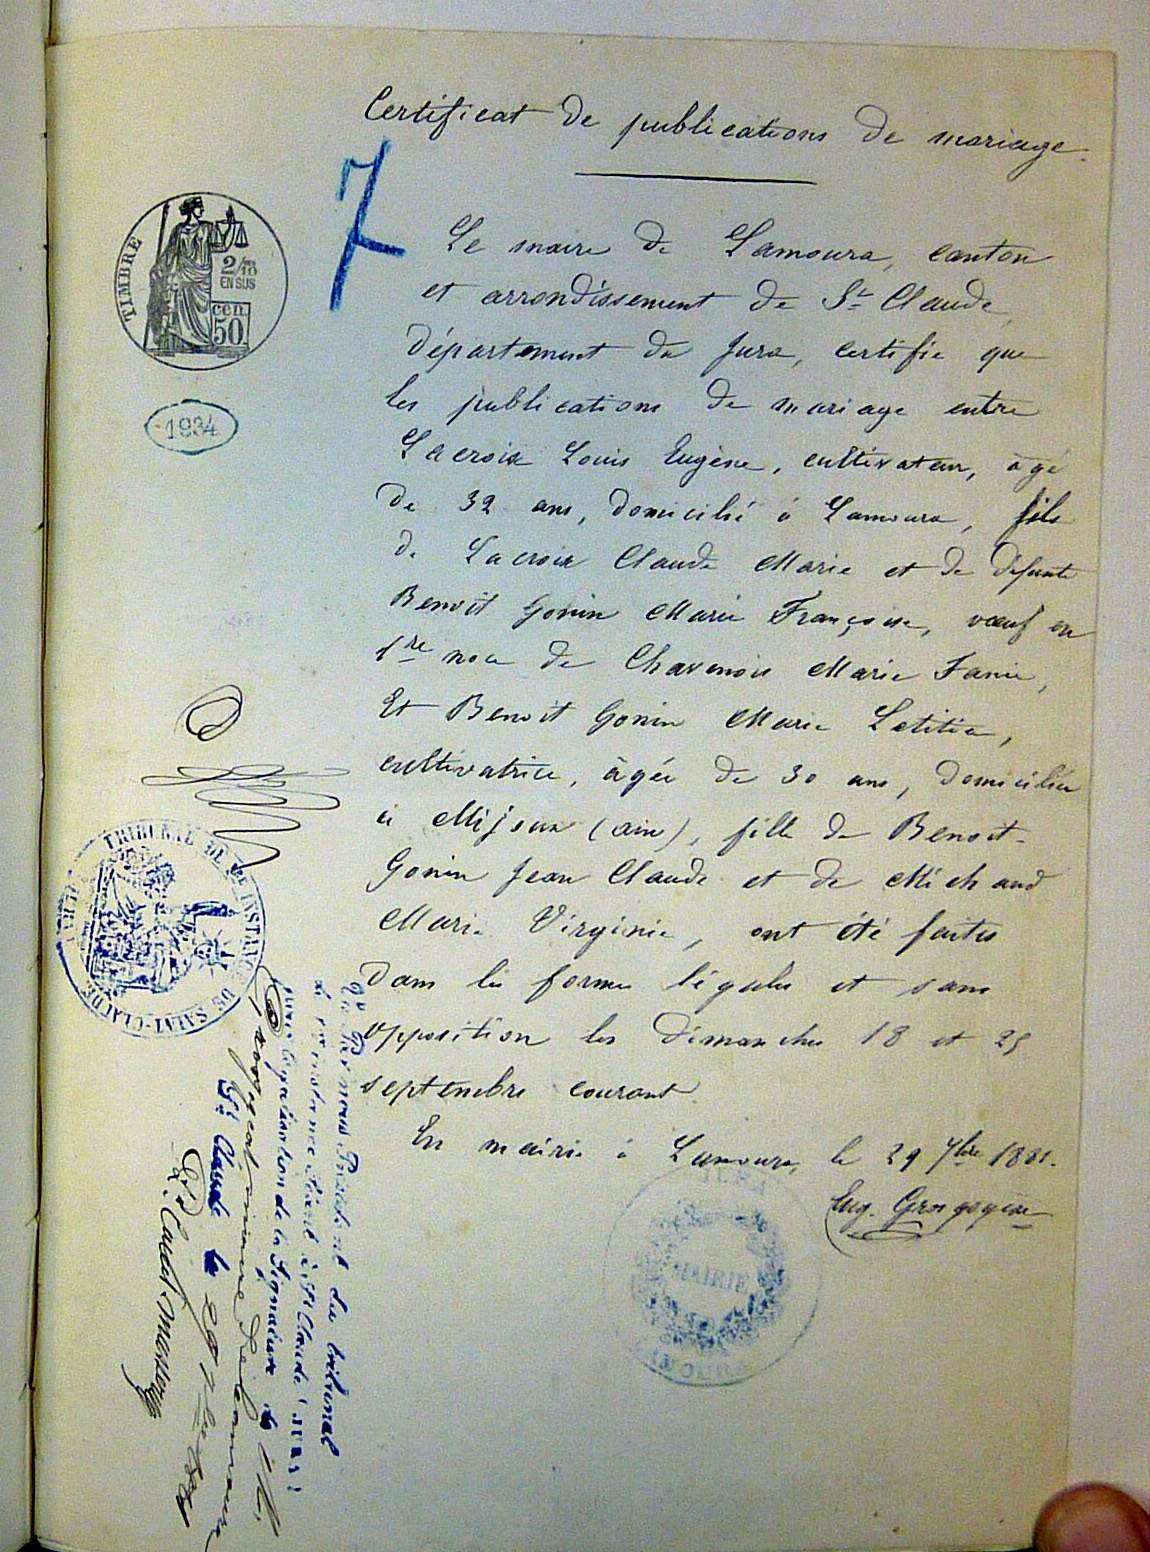 Certificat de publications de mariage.
7
TIMBRE
2/10
EN SUS
cen.
50
1934
Le maire de Lamoura, canton
et arrondissement de St Claude,
département du Jura, certifie que
les publications de mariage entre
Lacroix Louis Eugène, cultivateur, âgé
de 32 ans, domicilié à Lamoura, fils
de Lacroix Claude Marie et de défunte
Benoit Gonin Marie Françoise, vœuf en
1re noce de Chavenois Marie Fanie,
Et Benoit Gonin Marie Letitia,
cultivatrice, âgée de 30 ans, domiciliée
à Mijoux (ain), fille de Benoit-
Gonin Jean Claude et de Michaud
Marie Virginie, ont été faites
dans les formes légales et sans
opposition les dimanches 18 et 25
septembre courant.
En mairie à Lamoura, le 29 7bre 1881.
Eug. Grosgogeat
MAIRIE
LAMOURA
JURA
TRIBUNAL DE 1re INSTANCE DE SAINT-CLAUDE
Vu Par nous Président du tribunal
de première instance séant à St Claude (JURA)
pour légalisation de la Signature de M.
Grosgogeat, maire de Lamoura
St Claude le 29 7bre 1881